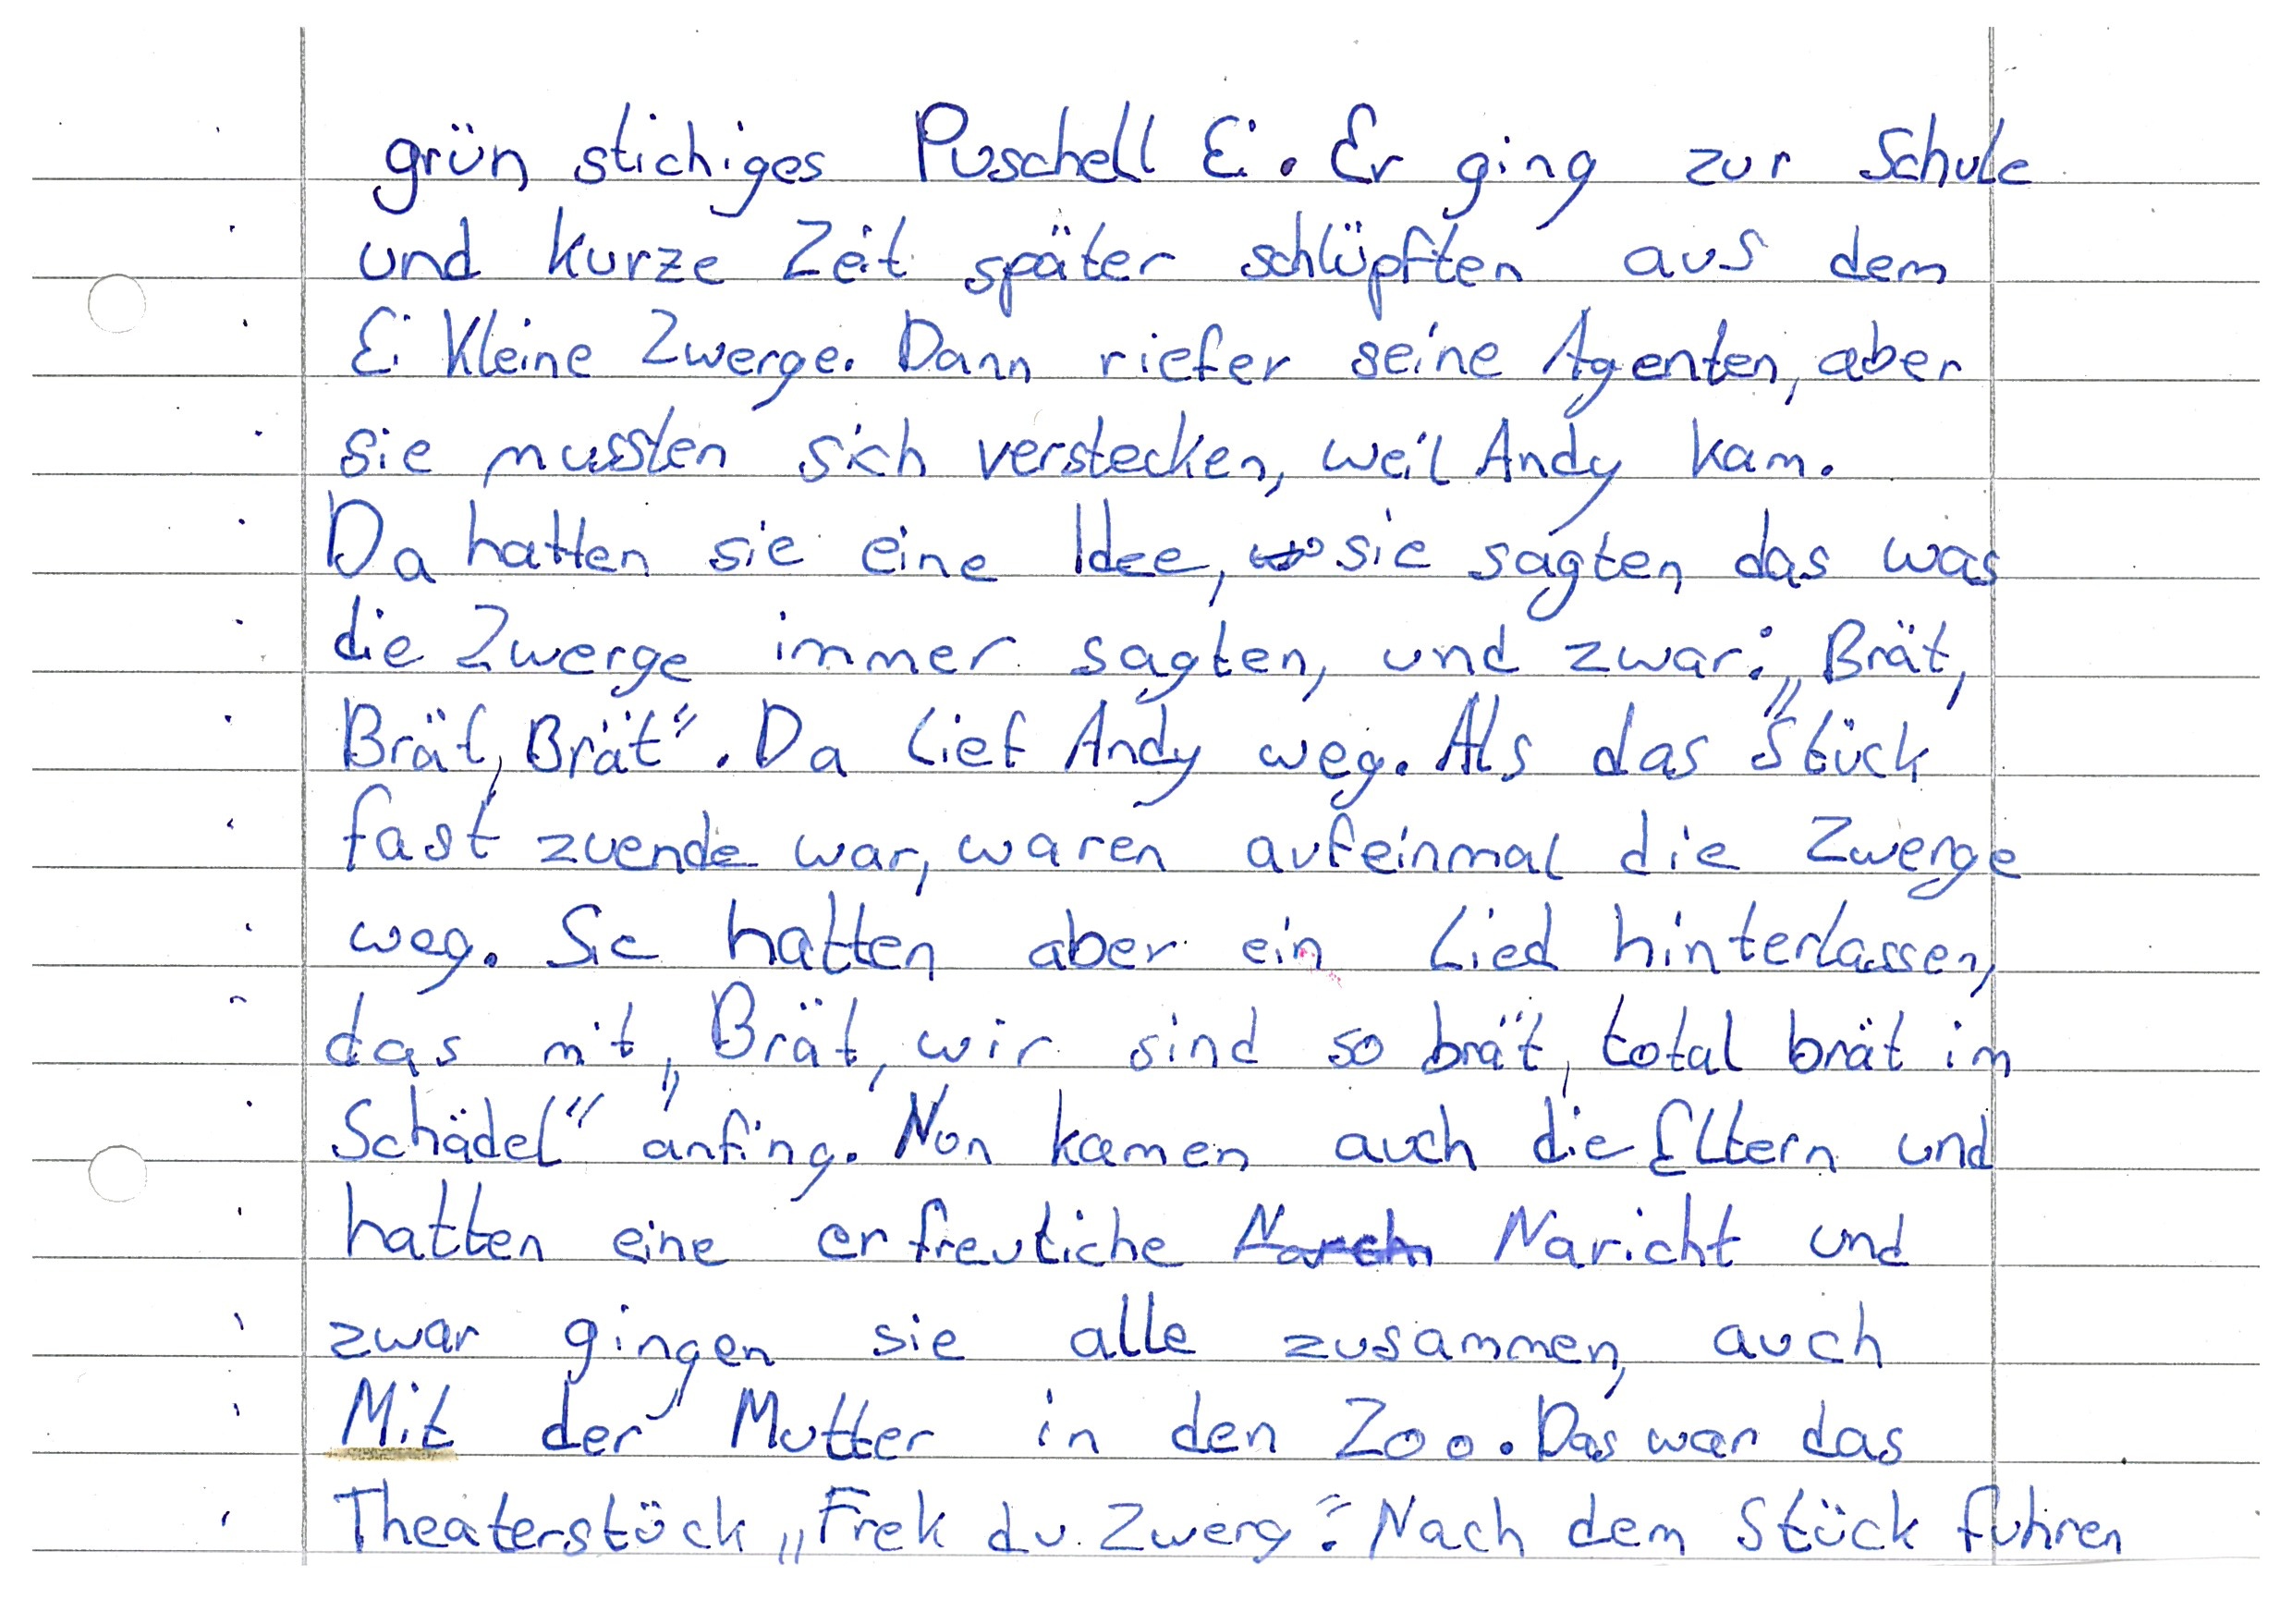 grün stichiges Puschell Ei. Er ging zur Schule
und kurze Zeit später schlüpften aus dem
Ei Kleine Zwerge. Dann riefer seine Agenten, aber
sie mussten sich verstecken, weil Andy kam.
Da hatten sie eine Idee, sie sagten das was
die Zwerge immer sagten, und zwar: „Brät,
Brät, Brät“. Da lief Andy weg. Als das Stück
fast zuende war, waren aufeinmal die Zwerge
weg. Sie hatten aber ein Lied hinterlassen,
das mit „Brät, wir sind so brät, total brät im
Schädel“ anfing. Non kamen auch die Eltern und
hatten eine erfreuliche Narch Naricht und
zwar gingen sie alle zusammen, auch
Mit der Mutter in den Zoo. Das war das
Theaterstück „Frek du Zwerg“. Nach dem Stück fuhren